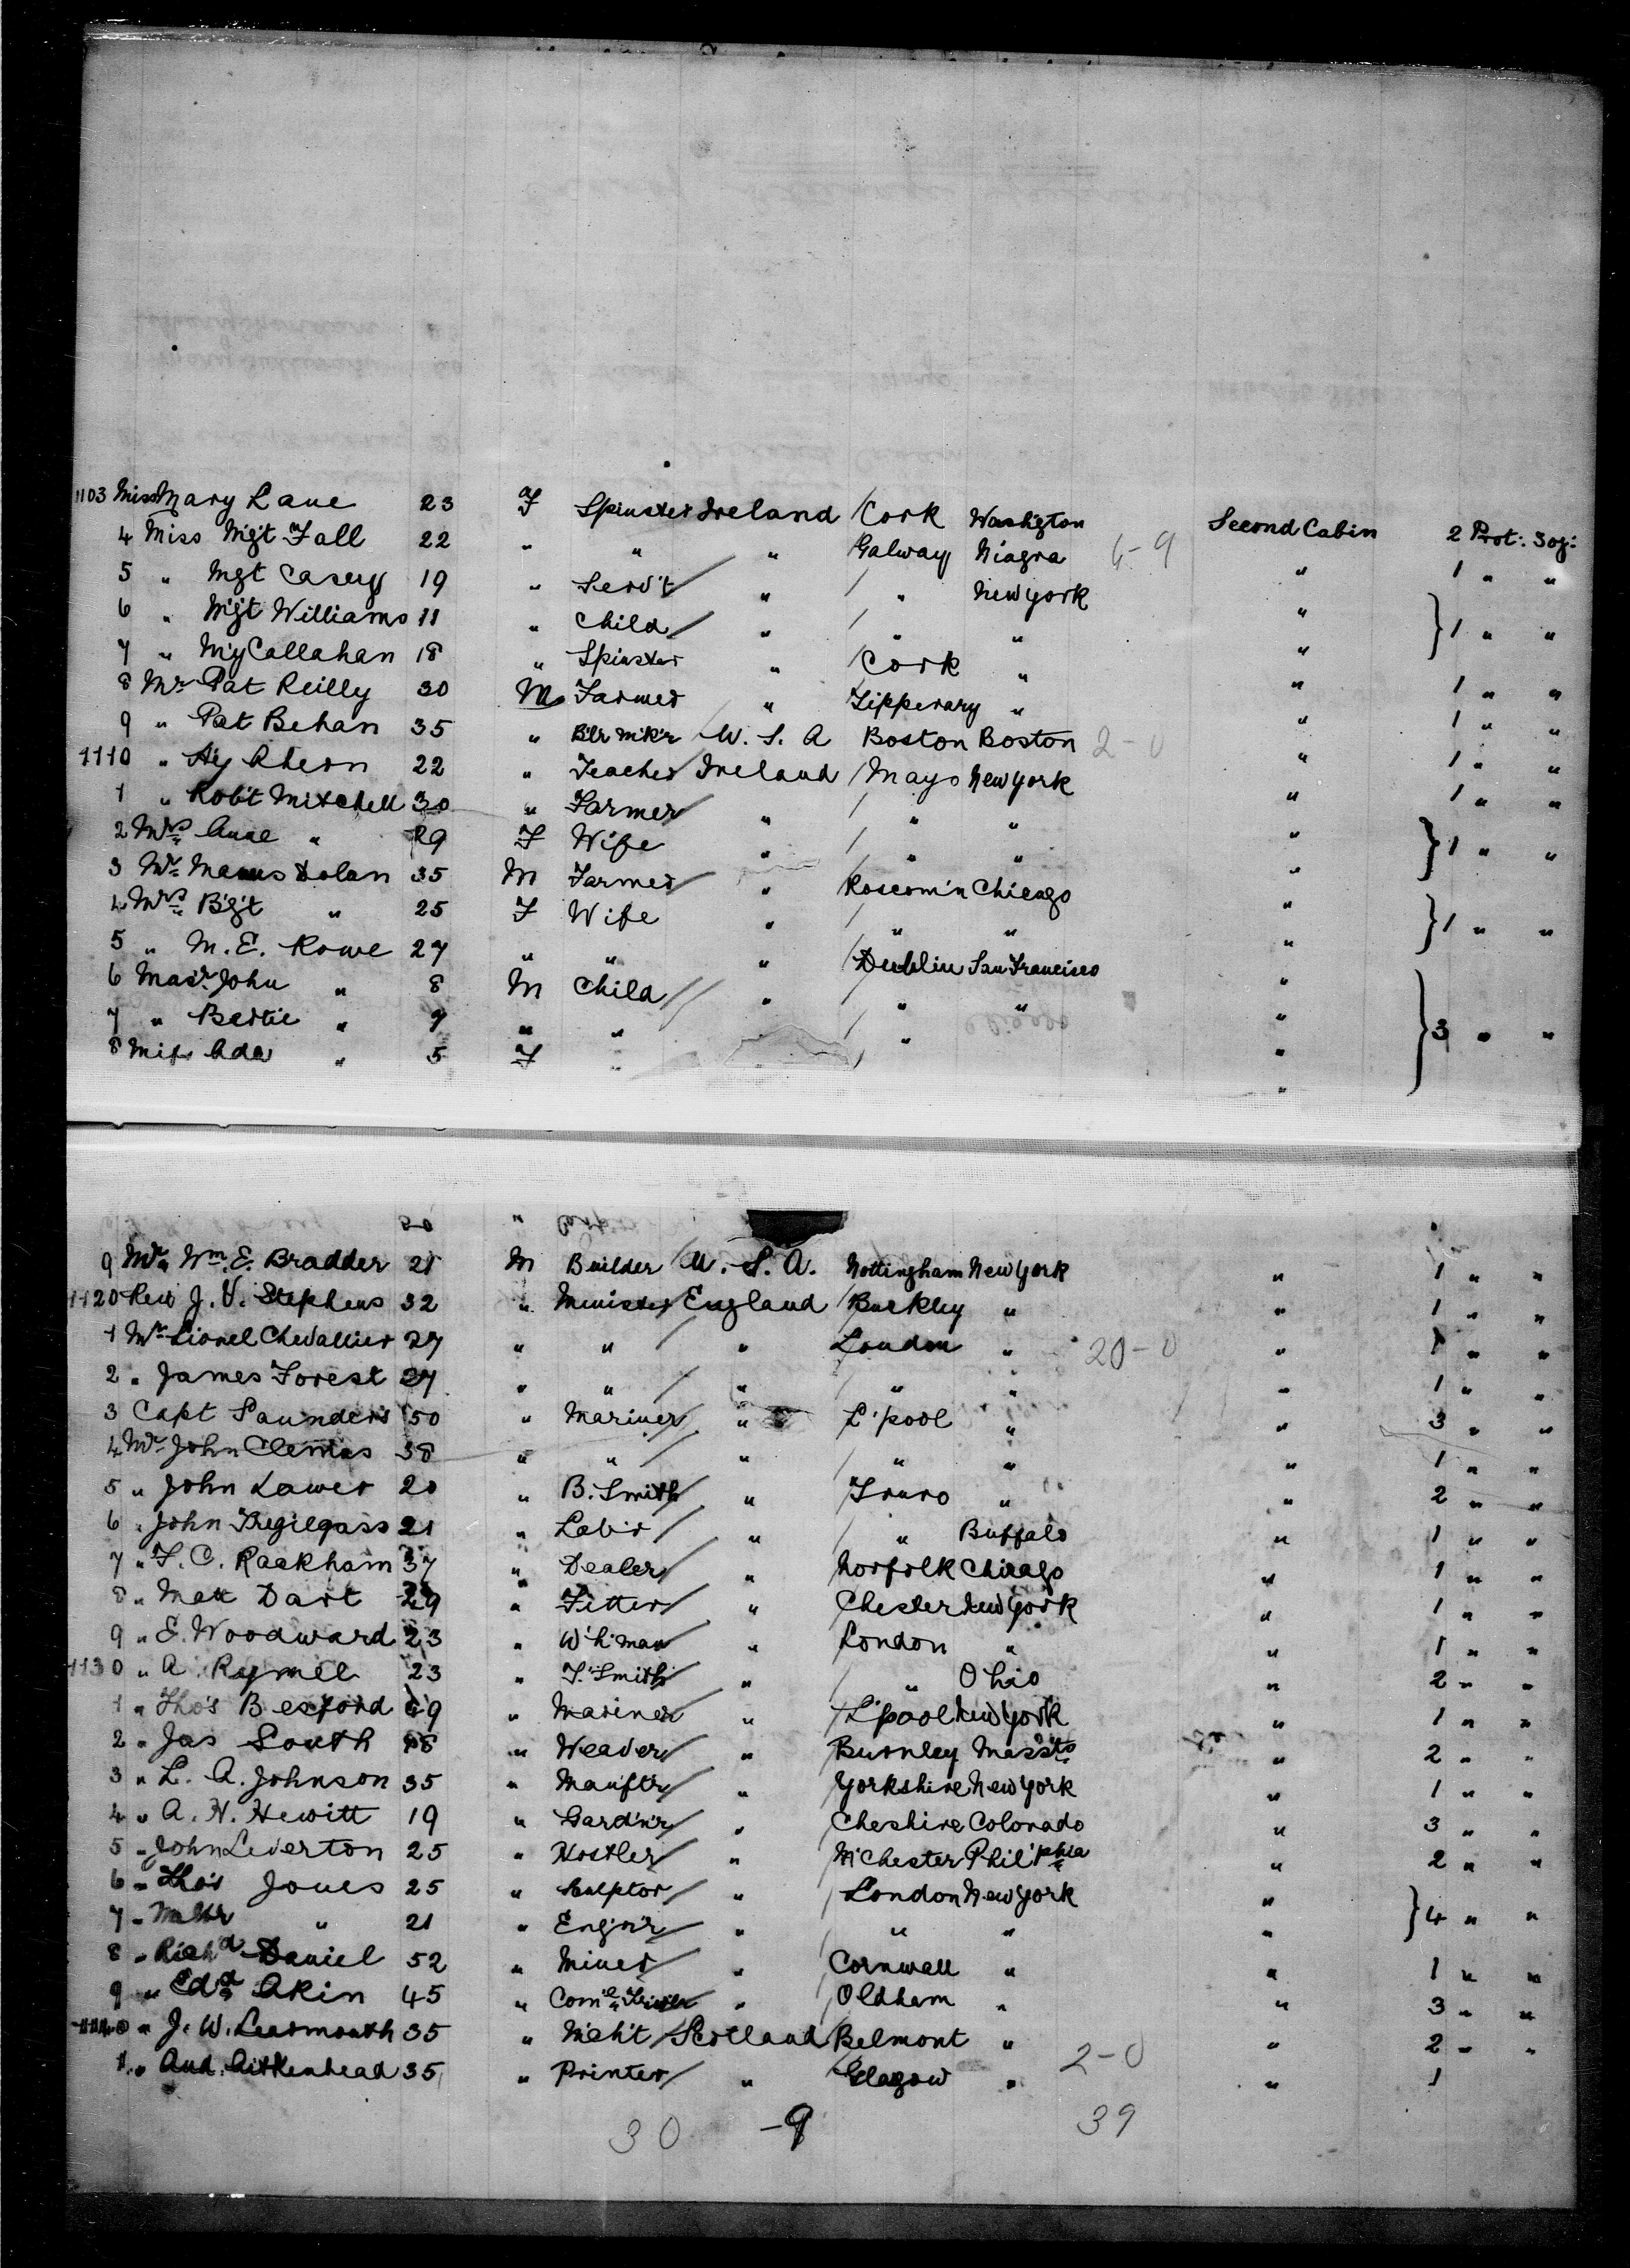 1103 Miss Mary Lane 23 F Spinster Ireland / Cork Washgton Second Cabin 2 Prot: 3 og:
4 Miss Mgt Fall 22 " " " Galway Niagra 6-9 " 1 " "
5 " Mgt Casey 19 " Serv't / " / " New York "
6 " Mgt Williams 11 " Child / " / " " " } 1 " "
7 " My Callahan 18 " Spinster " / Cork " "
8 Mr Pat Reilly 30 M Farmer " Tipperary " " 1 " "
9 " Pat Behan 35 " Blr mk'r U. S. A Boston Boston 2-0 " 1 " "
1110 " Hy Ahern 22 " Teacher Ireland / Mayo New York " 1 " "
1 " Rob't Mitchell 30 " Farmer / " / " " " 1 " "
2 Mrs Anne " 29 F Wife " / " " " } 1 " "
3 Mr Manus Dolan 35 M Farmer / " / Roscom'n Chicago "
4 Mrs Bgt " 25 F Wife " / " " " } 1 " "
5 " M. E. Rowe 27 " " " / Dublin San Francisco "
6 Mas'r John " 8 M Child // " " " "
7 " Bertie " 7 " " / " " } 3 " "
8 Miss Ada " 5 F " / " "
9 Mr Wm. E. Bradder 21 M Builder / U. S. A. Nottingham New York " 1 " "
1120 Rev J. V. Stephens 32 " Minister England / Barkley " " 1 " "
1 Mr Lionel Chevallier 27 " " / " London " 20-0 " 1 " "
2 " James Forest 27 " " / " / " " " 1 " "
3 Capt Saunders 50 " Mariner / " L'pool " " 3 " "
4 Mr John Clemas 38 " " / " / " " " 1 " "
5 " John Lawer 20 " B. Smith / " / Truro " " 2 " "
6 " John Tregilgass 21 " Lab'r / " / " Buffalo " 1 " "
7 " F. C. Rackham 37 " Dealer / " Norfolk Chicago " 1 " "
8 " Matt Dart 29 " Fitter / " Chester New York " 1 " "
9 " E. Woodward 23 " W'h'man " London " " 1 " "
1130 " A. Rymell 23 " T. Smith / " / " Ohio " 2 " "
1 " Tho's Bexford 49 " Mariner / " / L'pool New York " 1 " "
2 " Jas South 48 " Weaver / " / Burnley Mass'ts " 2 " "
3 " L. A. Johnson 35 " Manftr / " / Yorkshire New York " 1 " "
4 " A. H. Hewitt 19 " Gard'n'r / " / Cheshire Colorado " 3 " "
5 " John Leverton 25 " Hostler / " / M'chester Phil'phia " 2 " "
6 " Tho's Jones 25 " Sculptor / " / London New York "
7 " Walt'r " 21 " Engin'r / " / " " " } 4 " "
8 " Rich'd Daniel 52 " Miner / " / Cornwall " " 1 " "
9 " Edd Akin 45 " Com'l " / Oldham " " 3 " "
1140 " J. W. Learmonth 35 " M'ch't / Scotland / Belmont " " 2 " "
1 " And. Aitkenhead 35 " Printer / " / Glagow " 2-0 " 1
30 -9 39